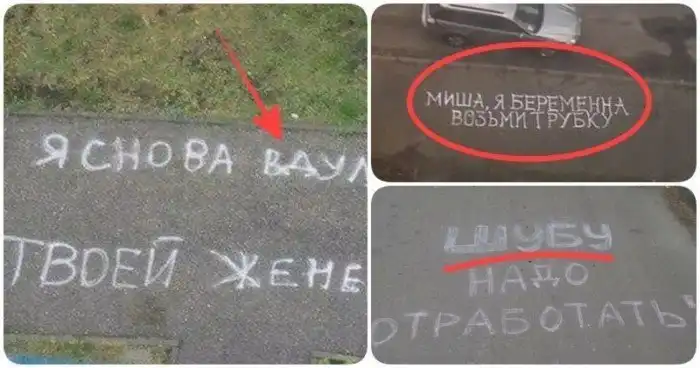 Я СНОВА ВДУЛ
ТВОЕЙ ЖЕНЕ
МИША, Я БЕРЕМЕННА
ВОЗЬМИ ТРУБКУ
ШУБУ
НАДО
ОТРАБОТАТЬ